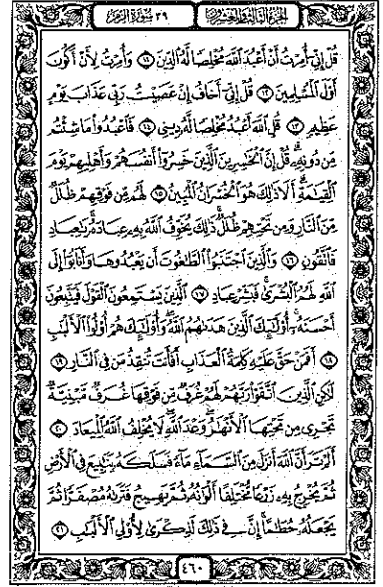 الجزء الثالث والعشرون
٣٩ سورة الزمر
قُلْ إِنِّي أُمِرْتُ أَنْ أَعْبُدَ اللَّهَ مُخْلِصًا لَهُ الدِّينَ ﴿١١﴾ وَأُمِرْتُ لِأَنْ أَكُونَ
أَوَّلَ الْمُسْلِمِينَ ﴿١٢﴾ قُلْ إِنِّي أَخَافُ إِنْ عَصَيْتُ رَبِّي عَذَابَ يَوْمٍ
عَظِيمٍ ﴿١٣﴾ قُلِ اللَّهَ أَعْبُدُ مُخْلِصًا لَهُ دِينِي ﴿١٤﴾ فَاعْبُدُوا مَا شِئْتُمْ
مِنْ دُونِهِ قُلْ إِنَّ الْخَاسِرِينَ الَّذِينَ خَسِرُوا أَنْفُسَهُمْ وَأَهْلِيهِمْ يَوْمَ
الْقِيَامَةِ أَلَا ذَلِكَ هُوَ الْخُسْرَانُ الْمُبِينُ ﴿١٥﴾ لَهُمْ مِنْ فَوْقِهِمْ ظُلَلٌ
مِنَ النَّارِ وَمِنْ تَحْتِهِمْ ظُلَلٌ ذَلِكَ يُخَوِّفُ اللَّهُ بِهِ عِبَادَهُ يَا عِبَادِ
فَاتَّقُونِ ﴿١٦﴾ وَالَّذِينَ اجْتَنَبُوا الطَّاغُوتَ أَنْ يَعْبُدُوهَا وَأَنَابُوا إِلَى
اللَّهِ لَهُمُ الْبُشْرَى فَبَشِّرْ عِبَادِ ﴿١٧﴾ الَّذِينَ يَسْتَمِعُونَ الْقَوْلَ فَيَتَّبِعُونَ
أَحْسَنَهُ أُولَئِكَ الَّذِينَ هَدَاهُمُ اللَّهُ وَأُولَئِكَ هُمْ أُولُو الْأَلْبَابِ
﴿١٨﴾ أَفَمَنْ حَقَّ عَلَيْهِ كَلِمَةُ الْعَذَابِ أَفَأَنْتَ تُنْقِذُ مَنْ فِي النَّارِ ﴿١٩﴾
لَكِنِ الَّذِينَ اتَّقَوْا رَبَّهُمْ لَهُمْ غُرَفٌ مِنْ فَوْقِهَا غُرَفٌ مَبْنِيَّةٌ
تَجْرِي مِنْ تَحْتِهَا الْأَنْهَارُ وَعْدَ اللَّهِ لَا يُخْلِفُ اللَّهُ الْمِيعَادَ ﴿٢٠﴾
أَلَمْ تَرَ أَنَّ اللَّهَ أَنْزَلَ مِنَ السَّمَاءِ مَاءً فَسَلَكَهُ يَنَابِيعَ فِي الْأَرْضِ
ثُمَّ يُخْرِجُ بِهِ زَرْعًا مُخْتَلِفًا أَلْوَانُهُ ثُمَّ يَهِيجُ فَتَرَاهُ مُصْفَرًّا ثُمَّ
يَجْعَلُهُ حُطَامًا إِنَّ فِي ذَلِكَ لَذِكْرَى لِأُولِي الْأَلْبَابِ ﴿٢١﴾
٤٦٠